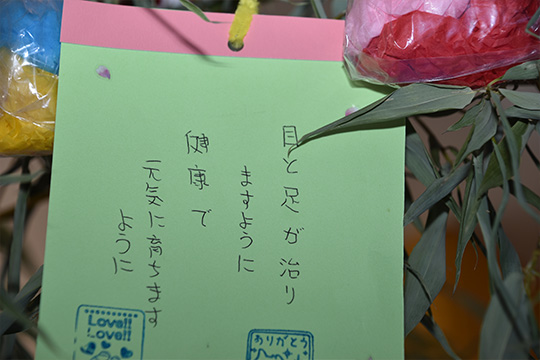 目と足が治り
ますように
健康で
元気に育ちます
ように
Love!!
Love!!
ありがとう